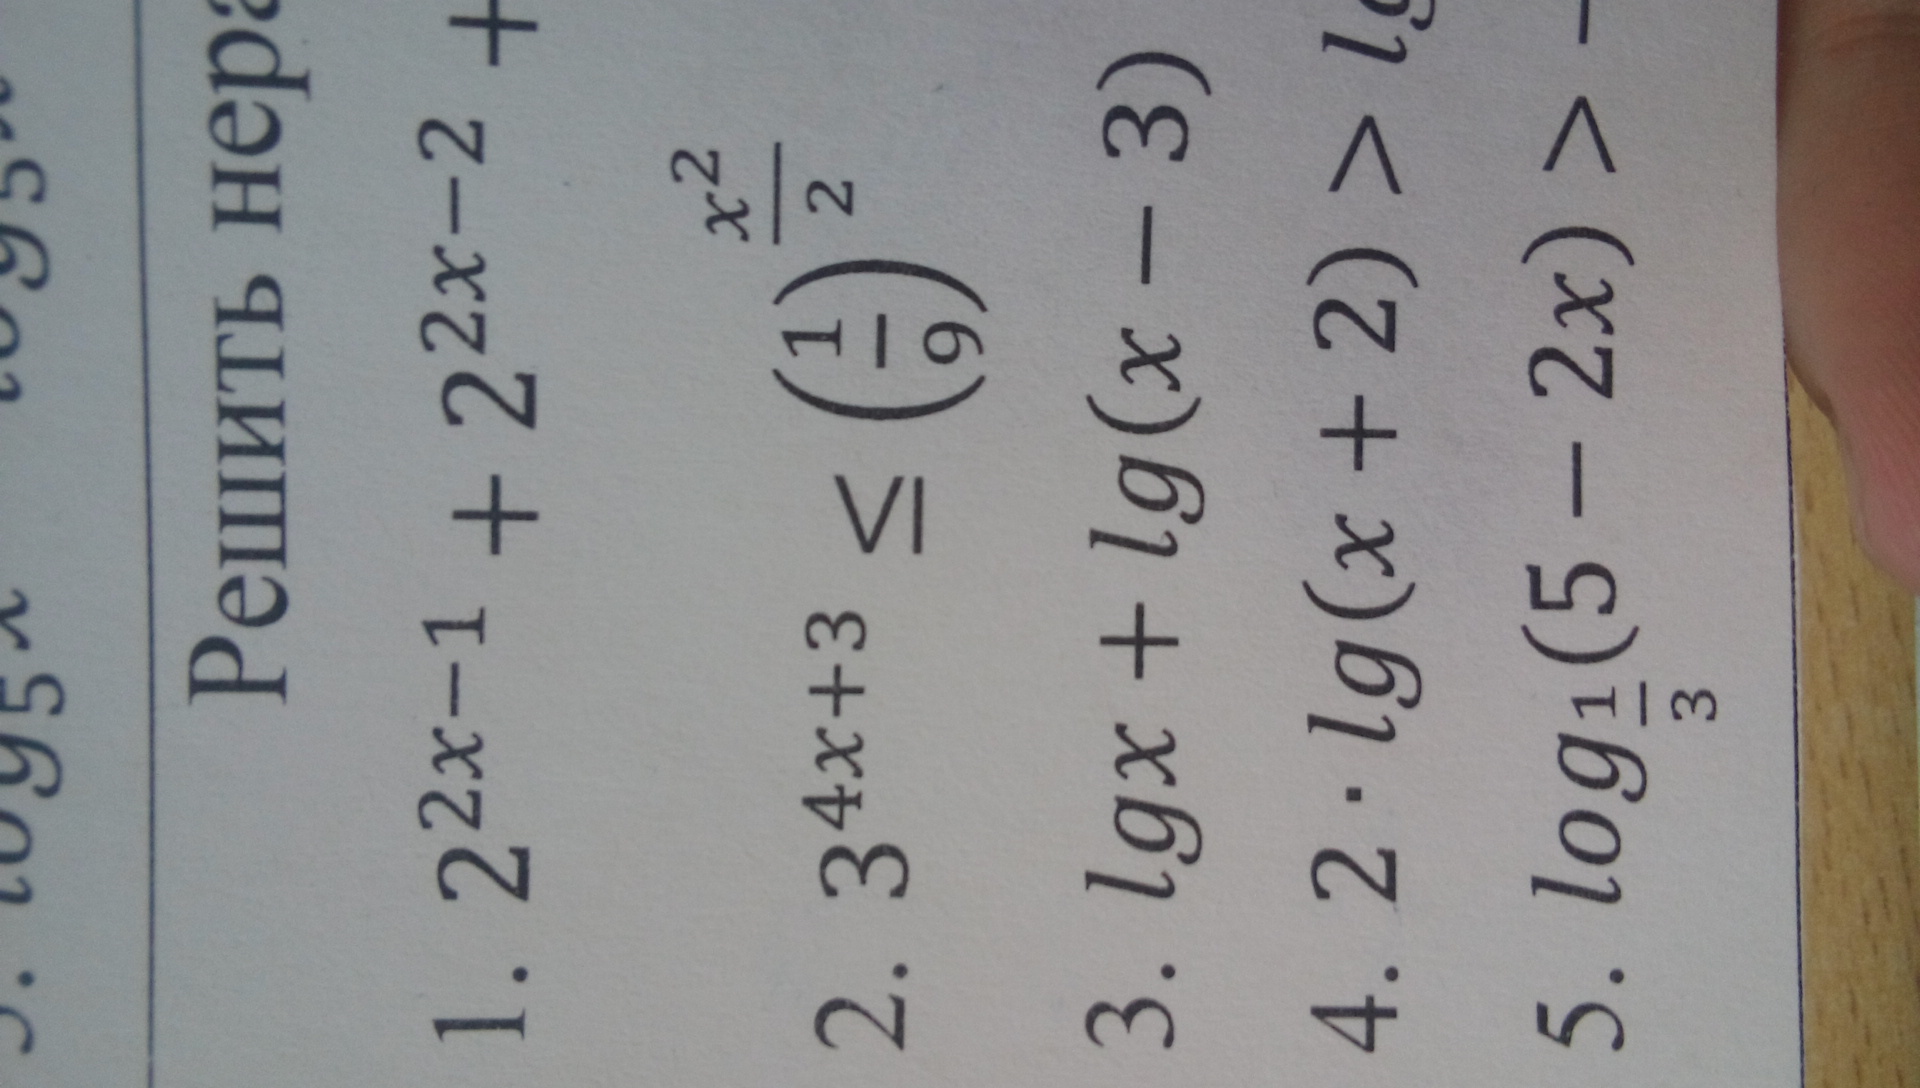 5. log₅x log₅x
Решить нера
1. 2^{2x−1} + 2^{2x−2} +
2. 3^{4x+3} ≤ (1/9)^{x²/2}
3. lgx + lg(x − 3)
4. 2 · lg(x + 2) > lg
5. log_{1/3}(5 − 2x) > −